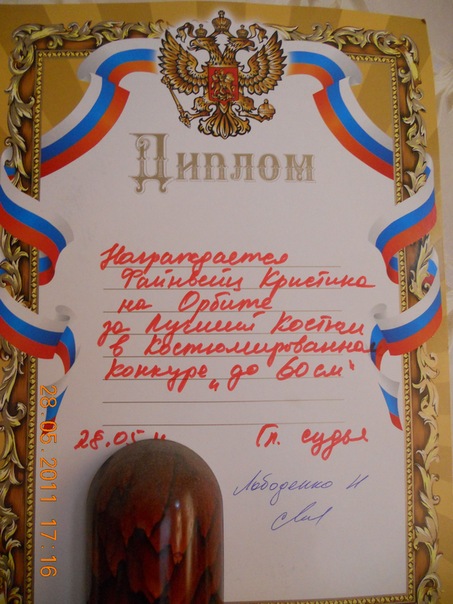 Диплом
Награждается
Файнвейц Кристина
на Орбите
за Лучший Костюм
в Костюмированном
Конкурсе „до 60 см"
28.05.11 Гл. судья
Лободенко И
28.05.2011 17:16